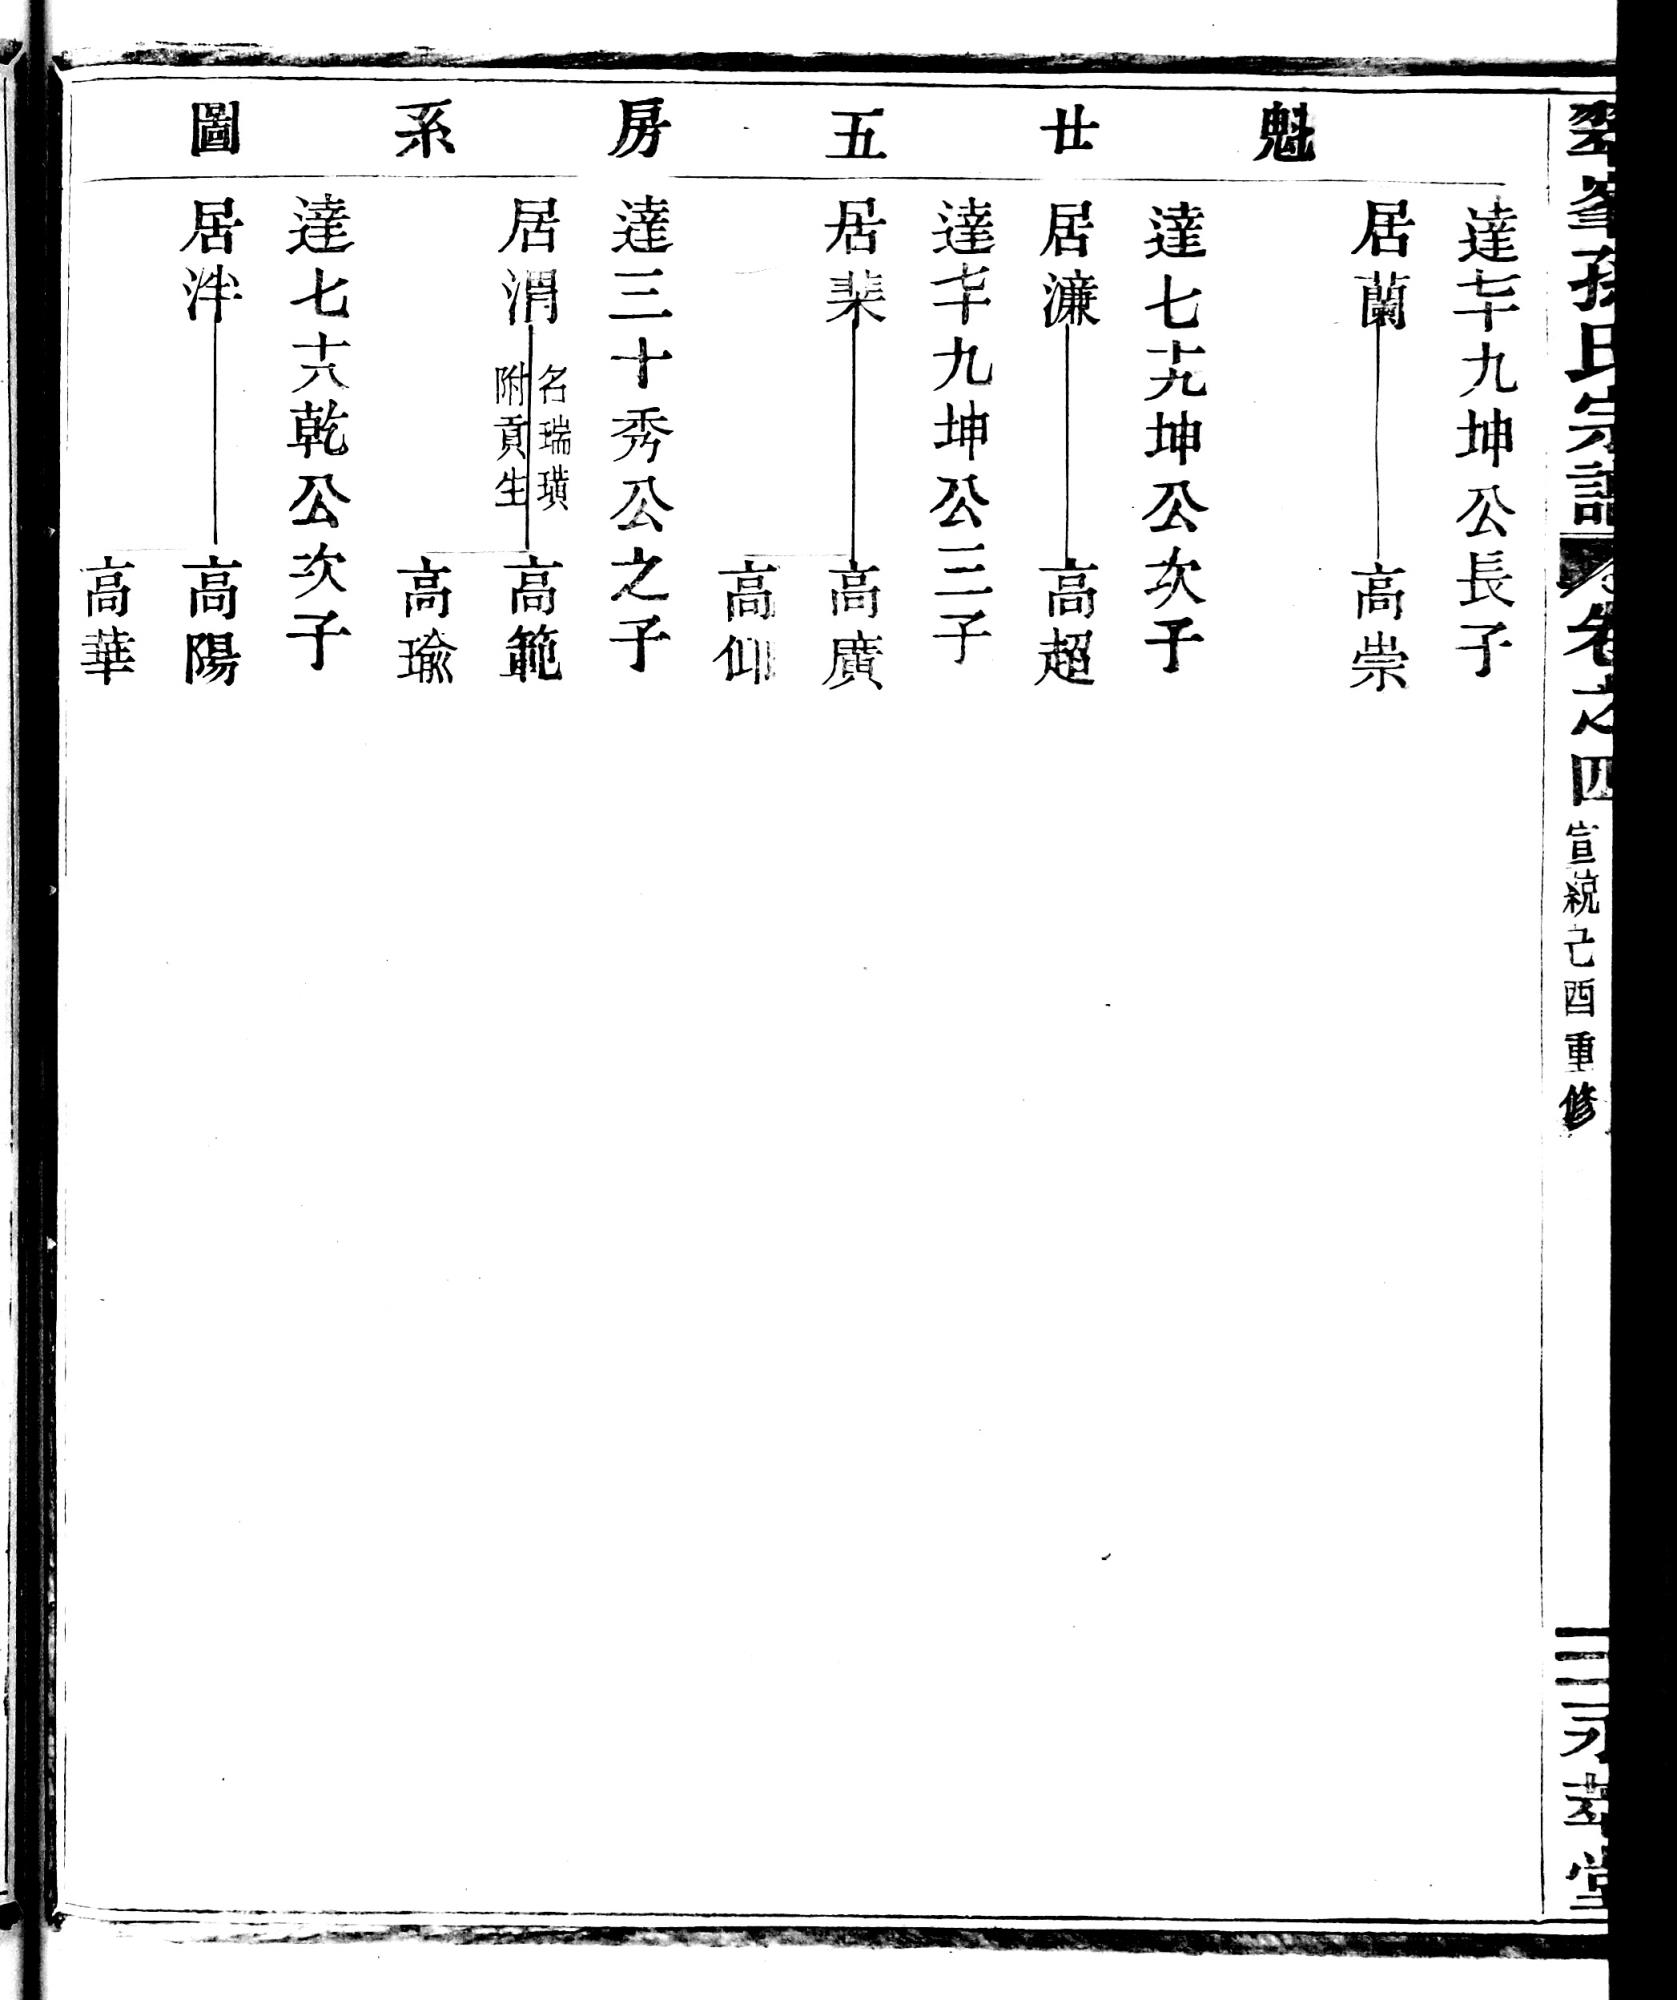 翠峯孫氏宗譜
卷之四
宣統己酉重修
永華堂
魁廿五房系圖
達七十九坤公長子
居蘭
高崇
達七十九坤公次子
居濂
高超
達七十九坤公三子
居棐
高廣
高仰
達三十秀公之子
居渭
名瑞璜
附貢生
高範
高瑜
達七十六乾公次子
居泮
高陽
高華